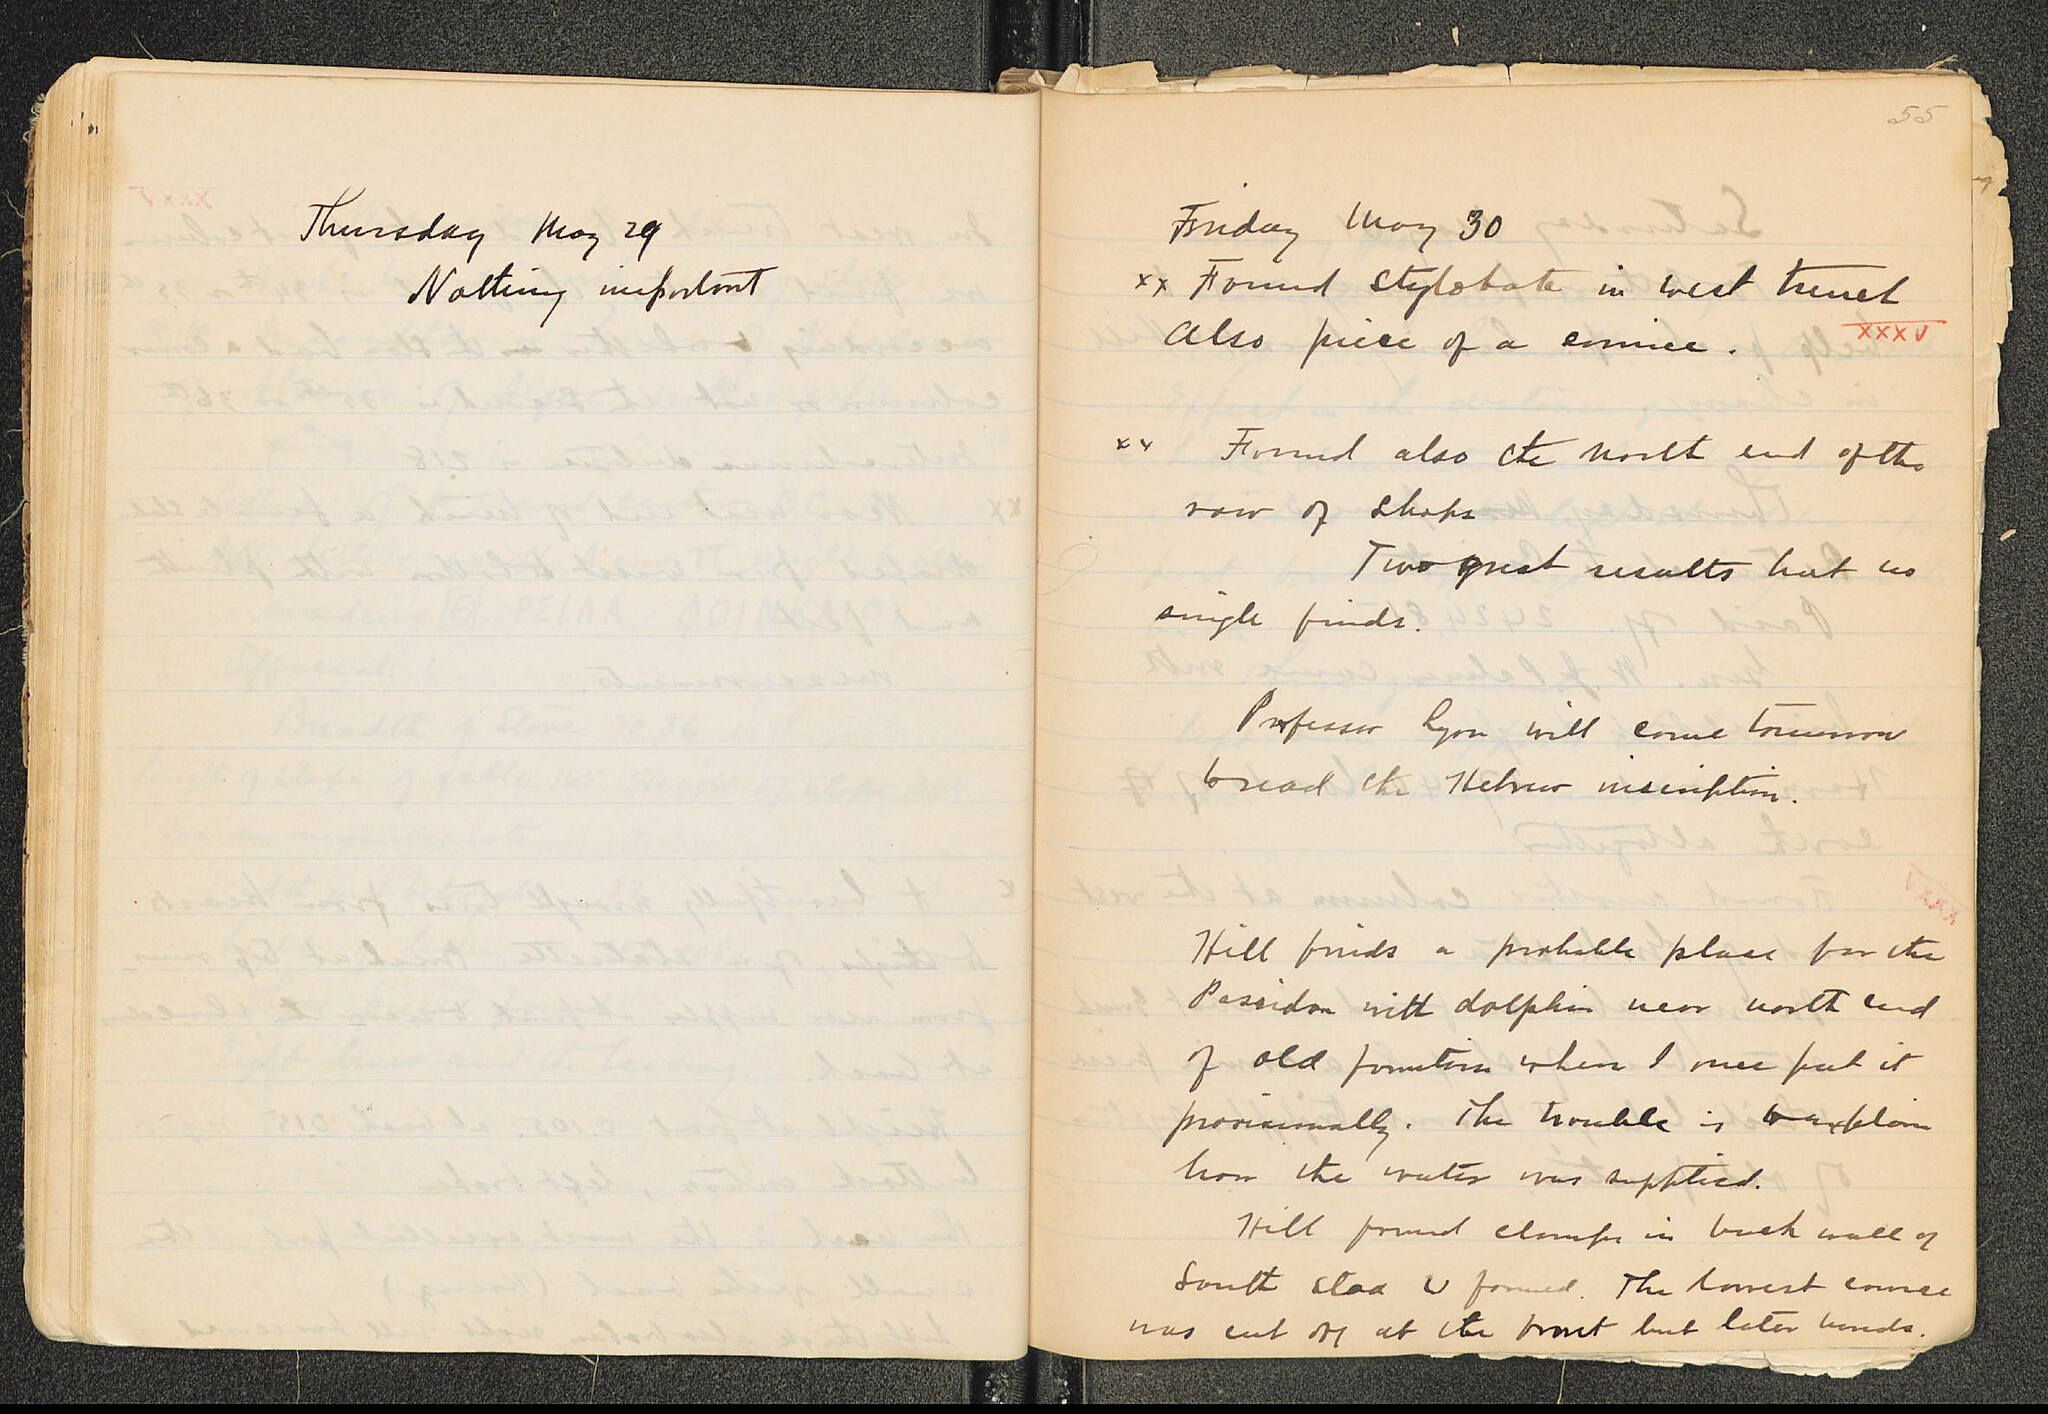 Thursday May 29
Nothing important
55
Friday May 30
xx Found stylobate in west trench
XXXV
Also piece of a cornice.
xx Found also the north end of the
row of shops
Two great results but no
single finds.
Professor Lyon will come tomorrow
to read the Hebrew inscription.
Hill finds a probable place for the
Poseidon with dolphin near north end
of old fountain where I once put it
provisionally. The trouble is to explain
how the water was supplied.
Hill found clamps in back wall of
South Stoa U formed. The lowest course
was cut off at the front but later hands.